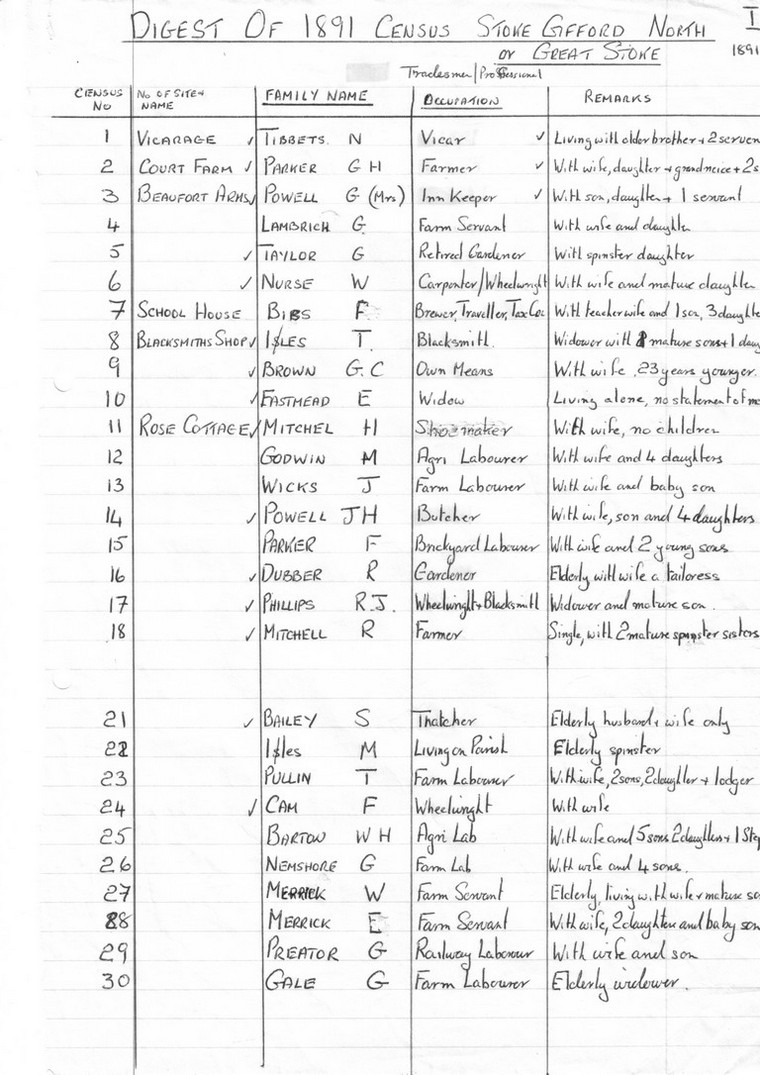 DIGEST OF 1891 CENSUS STOKE GIFFORD NORTH I
OR GREAT STOKE 1891
Tradesmen/Professional
CENSUS NO No OF SITE + NAME FAMILY NAME OCCUPATION REMARKS
1 VICARAGE ✓ TIBBETS N Vicar ✓ Living with older brother + 2 serven
2 COURT FARM ✓ PARKER G H Farmer ✓ With wife, daughter + grandneice + 2 s
3 BEAUFORT ARMS ✓ POWELL G (Mrs) Inn Keeper ✓ With son, daughter + 1 servant
4 LAMBRICH G Farm Servant With wife and daughter
5 ✓ TAYLOR G Retired Gardener With spinster daughter
6 ✓ NURSE W Carpenter/Wheelwright With wife and mature daughter
7 SCHOOL HOUSE BIBS F Brewer, Traveller, Tax Col With teacher wife and 1 son, 3 daughte
8 BLACKSMITHS SHOP ✓ ISLES T. Blacksmith. Widower with mature sons + 1 daug
9 ✓ BROWN G.C Own Means With wife 23 years younger.
10 ✓ EASTMEAD E Widow Living alone, no statement of me
11 ROSE COTTAGE ✓ MITCHEL H Shoemaker With wife, no children
12 GODWIN M Agri Labourer With wife and 4 daughters
13 WICKS J Farm Labourer With wife and baby son
14 ✓ POWELL JH Butcher With wife, son and 4 daughters
15 PARKER F Brickyard Labourer With wife and 2 young sons
16 ✓ DUBBER R Gardener Elderly with wife a tailoress
17 ✓ PHILLIPS R.J. Wheelwright + Blacksmith Widower and mature son.
18 ✓ MITCHELL R Farmer Single, with 2 mature spinster sisters
21 ✓ BAILEY S Thatcher Elderly husband + wife only
22 Isles M Living on Parish Elderly spinster
23 PULLIN T Farm Labourer With wife, 2 sons, 2 daughter + lodger
24 ✓ CAM F Wheelwright With wife
25 BARTON W H Agri Lab With wife and 5 sons 2 daughters + 1 Step
26 NEMSHORE G Farm Lab With wife and 4 sons.
27 MERRICK W Farm Servant Elderly, living with wife + mature so
28 MERRICK E Farm Servant With wife, 2 daughters and baby son
29 PREATOR G Railway Labourer With wife and son
30 GALE G Farm Labourer Elderly widower.